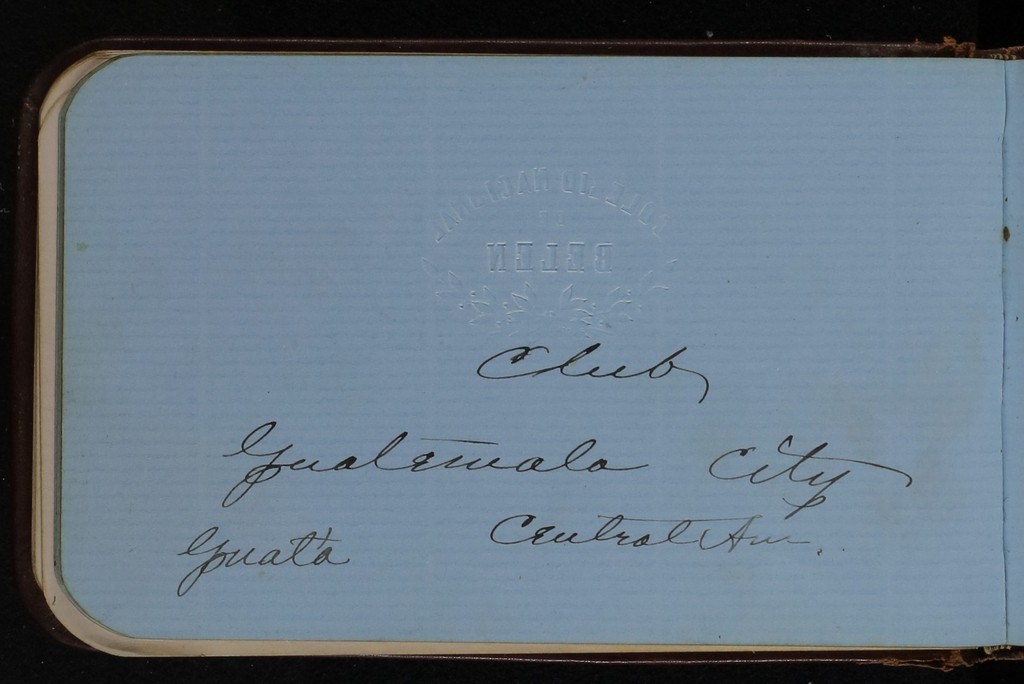 COLEGIO NACIONAL
DE
BELEN
Club
Guatemala City
Guat'a Central Am.